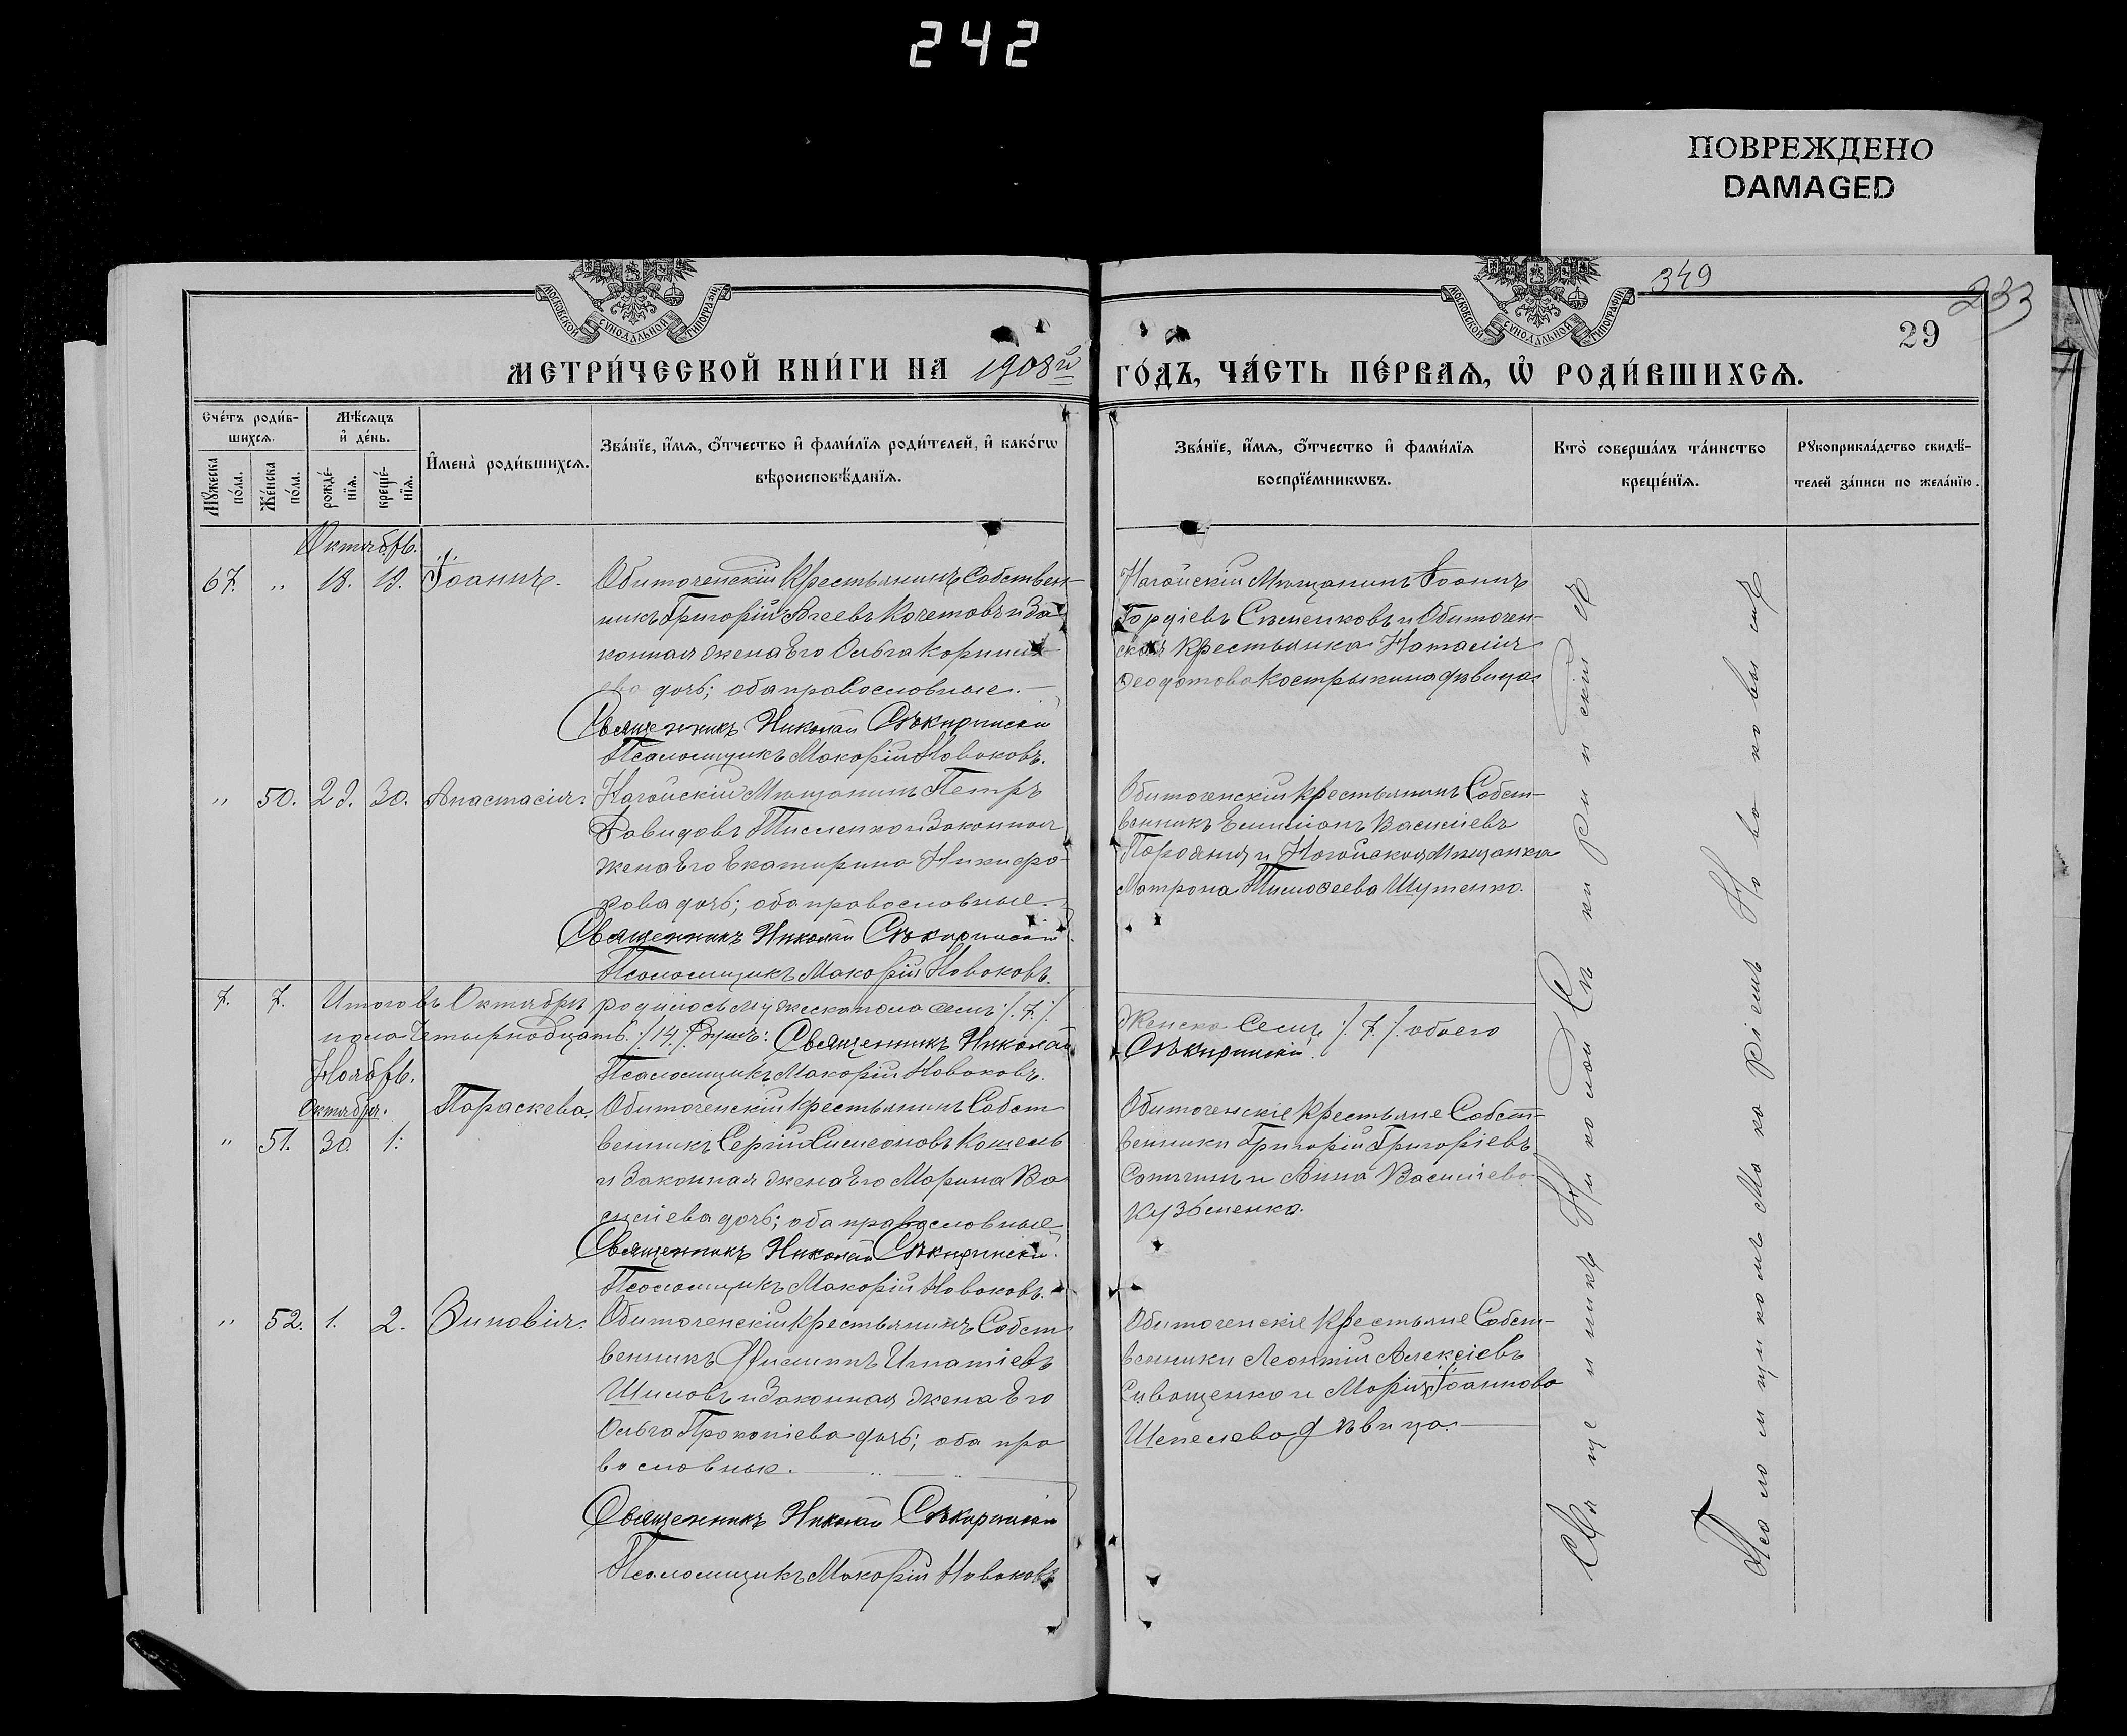 242
ПОВРЕЖДЕНО
DAMAGED
349
233
29
МОСКОВСКОЙ СѴНОДАЛЬНОЙ ТИПОГРАФІИ
МОСКОВСКОЙ СѴНОДАЛЬНОЙ ТИПОГРАФІИ
МЕТРИ́ЧЕСКОЙ КНИ́ГИ НА 1908й ГО́ДЪ, ЧА́СТЬ ПЕ́РВАѦ, Ѡ҆ РОДИ́ВШИХСѦ.
Сче́тъ роди́в-
шихсѧ.
Мѣ́сѧцъ
и҆ де́нь.
Мꙋ́жеска
по́ла.
Же́нска
по́ла.
рожде́-
нїѧ.
креще́-
нїѧ.
И҆мена̀ роди́вшихсѧ.
Зва́нїе, и҆́мѧ, ѻ҆́тчество и҆ фами́лїѧ роди́телей, и҆ како́гѡ
вѣроисповѣ́данїѧ.
Зва́нїе, и҆́мѧ, ѻ҆́тчество и҆ фами́лїѧ
воспрїе́мникѡвъ.
Кто̀ соверша́лъ та́инство
креще́нїѧ.
Рꙋкоприкла́дство свидѣ́-
телей за́писи по жела́нїю.
Октябрь.
67. " 18. 19. Іоаннъ.
Обиточенскій Крестьянинъ Собствен-
никъ Григорій Агеевъ Кочетовъ и За
конная жена Его Ольга Корнилі
ева дочь; оба православные.
Священникъ Николай Сѣкиринскій
Псаломщикъ Макарій Новаковъ.
Ногайскій Мѣщанинъ Іоаннъ
Гордіевъ и Обиточен-
ская Крестьянка Наталія
Ѳеодотова Кострыкина дѣвица.
" 50. 29. 30. Анастасія.
Ногайскій Мѣщанинъ Петръ
Давидовъ Тисленко и Законная
жена Его Екатерина Никифо-
рова дочь; оба православные.
Священникъ Николай Сѣкиринскій
Псаломщикъ Макарій Новаковъ.
Обиточенскій Крестьянинъ Собст-
венникъ Емиліанъ Василіевъ
и Ногайская Мѣщанка
Матрона Тимоѳеева Шутенко.
7. 7. Итого въ Октябрѣ родилось мужеска пола семь /. 7. /. Женска Семь /. 7. /. обоего
пола Четырнадцать /. 14 /. душъ: Священникъ Николай Сѣкиринскій.
Псаломщикъ Макарій Новаковъ.
Ноябрь.
Октября.
" 51. 30. 1. Параскева.
Обиточенскій Крестьянинъ Собст
венникъ Сергій Симеоновъ Кошель
и Законная жена Его Марина Ва
силіева дочь; оба православные
Священникъ Николай Сѣкиринскій.
Псаломщикъ Макарій Новаковъ.
Обиточенскіе Крестьяне Собст-
венники Григорій Григоріевъ
и Анна Василіева
Кузьменко.
" 52. 1. 2. Зиновія.
Обиточенскій Крестьянинъ Собст
венникъ Филиппъ Игнатіевъ
Шиловъ и Законная жена Его
Ольга Прокопіева дочь; оба пра
вославные.
Священникъ Николай Сѣкиринскій
Псаломщикъ Макарій Новаковъ
Обиточенскіе Крестьяне Собст-
венники Леонтій Алексіевъ
Сиващенко и Марія Іоаннова
Шепелева дѣвица.
Священникъ Николай Сѣкиринскій съ
Псаломщикомъ Макаріемъ Новаковымъ